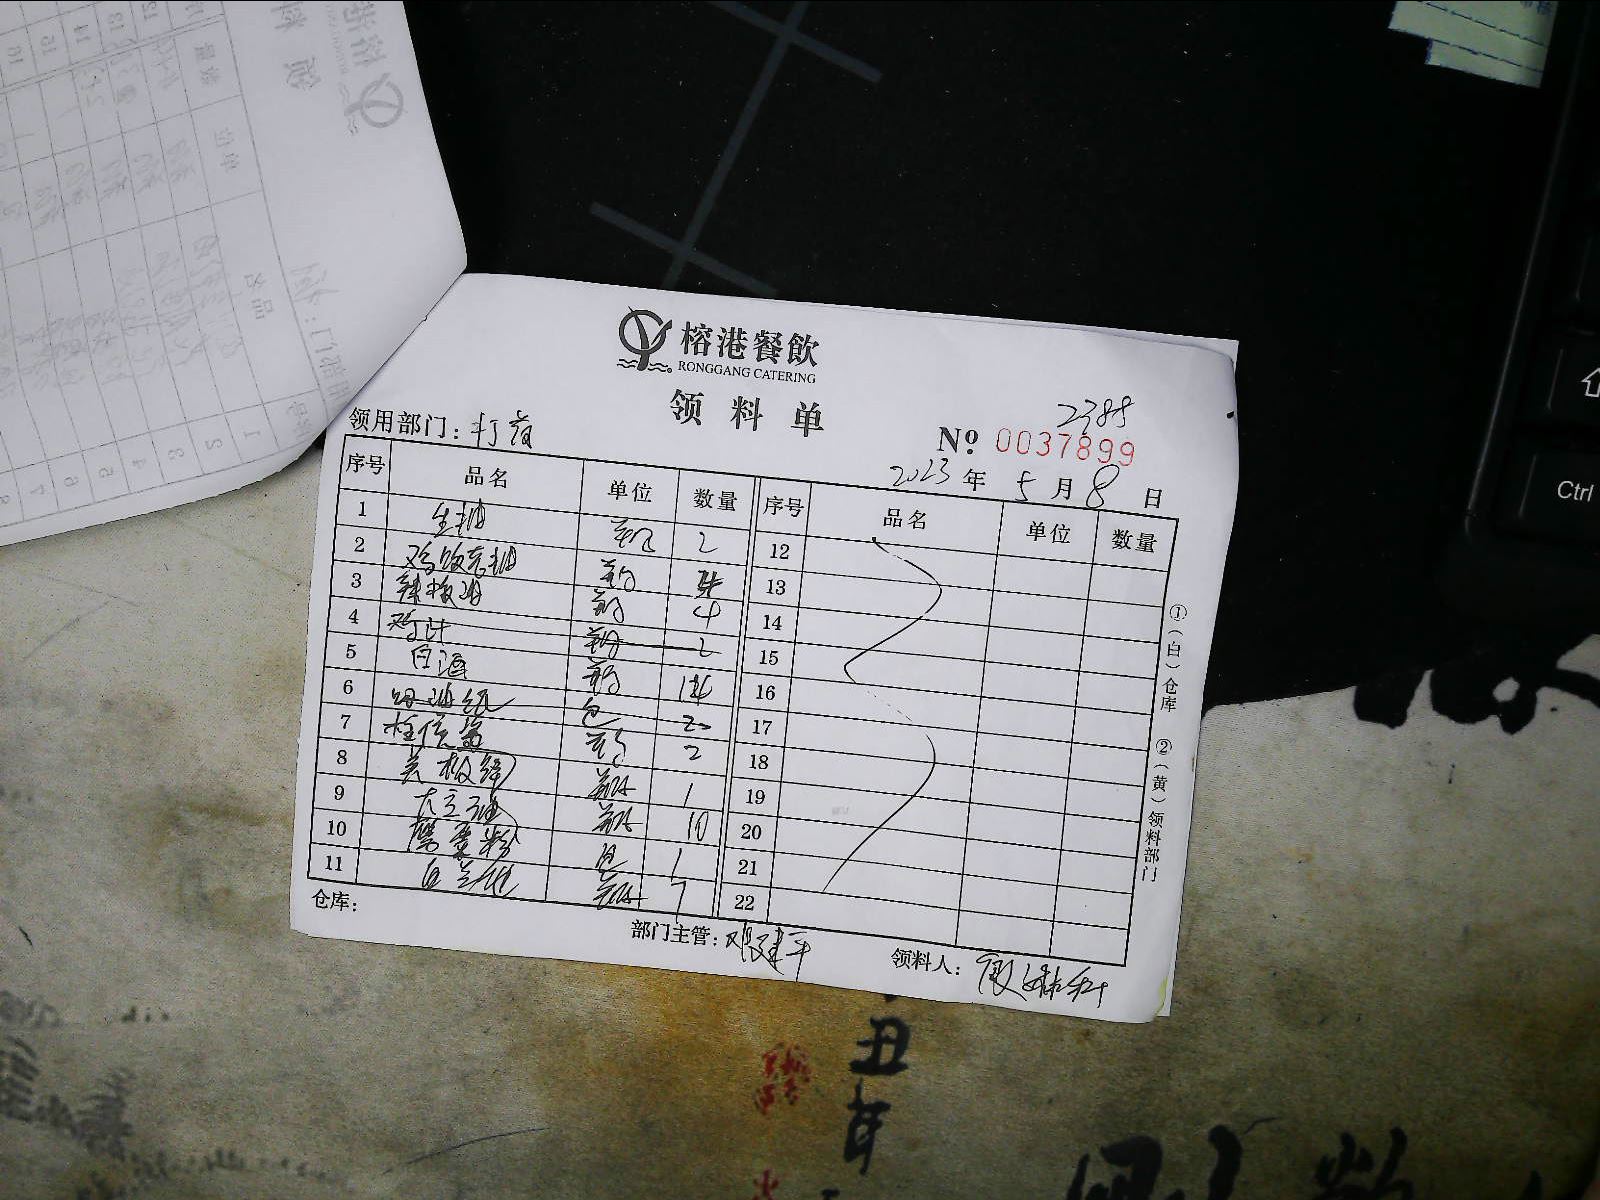 榕港餐飲
RONGGANG CATERING
领料单
2388
领用部门：打荷
№ 0037899
2023年5月8日
序号 品名 单位 数量 序号 品名 单位 数量
1 生抽 瓶 2 12
2 鸡饭老抽 瓶 13
3 辣椒油 瓶 4 14
4 鸡汁 瓶 2 15
5 白酒 瓶 16
6 吸油纸 包 20 17
7 桂侯酱 瓶 2 18
8 美极鲜 瓶 1 19
9 大豆油 瓶 10 20
10 鹰粟粉 包 1 21
11 白兰地 瓶 7 22
①（白）仓库 ②（黄）领料部门
仓库：
部门主管：邓建平
领料人：
Ctrl
丑年